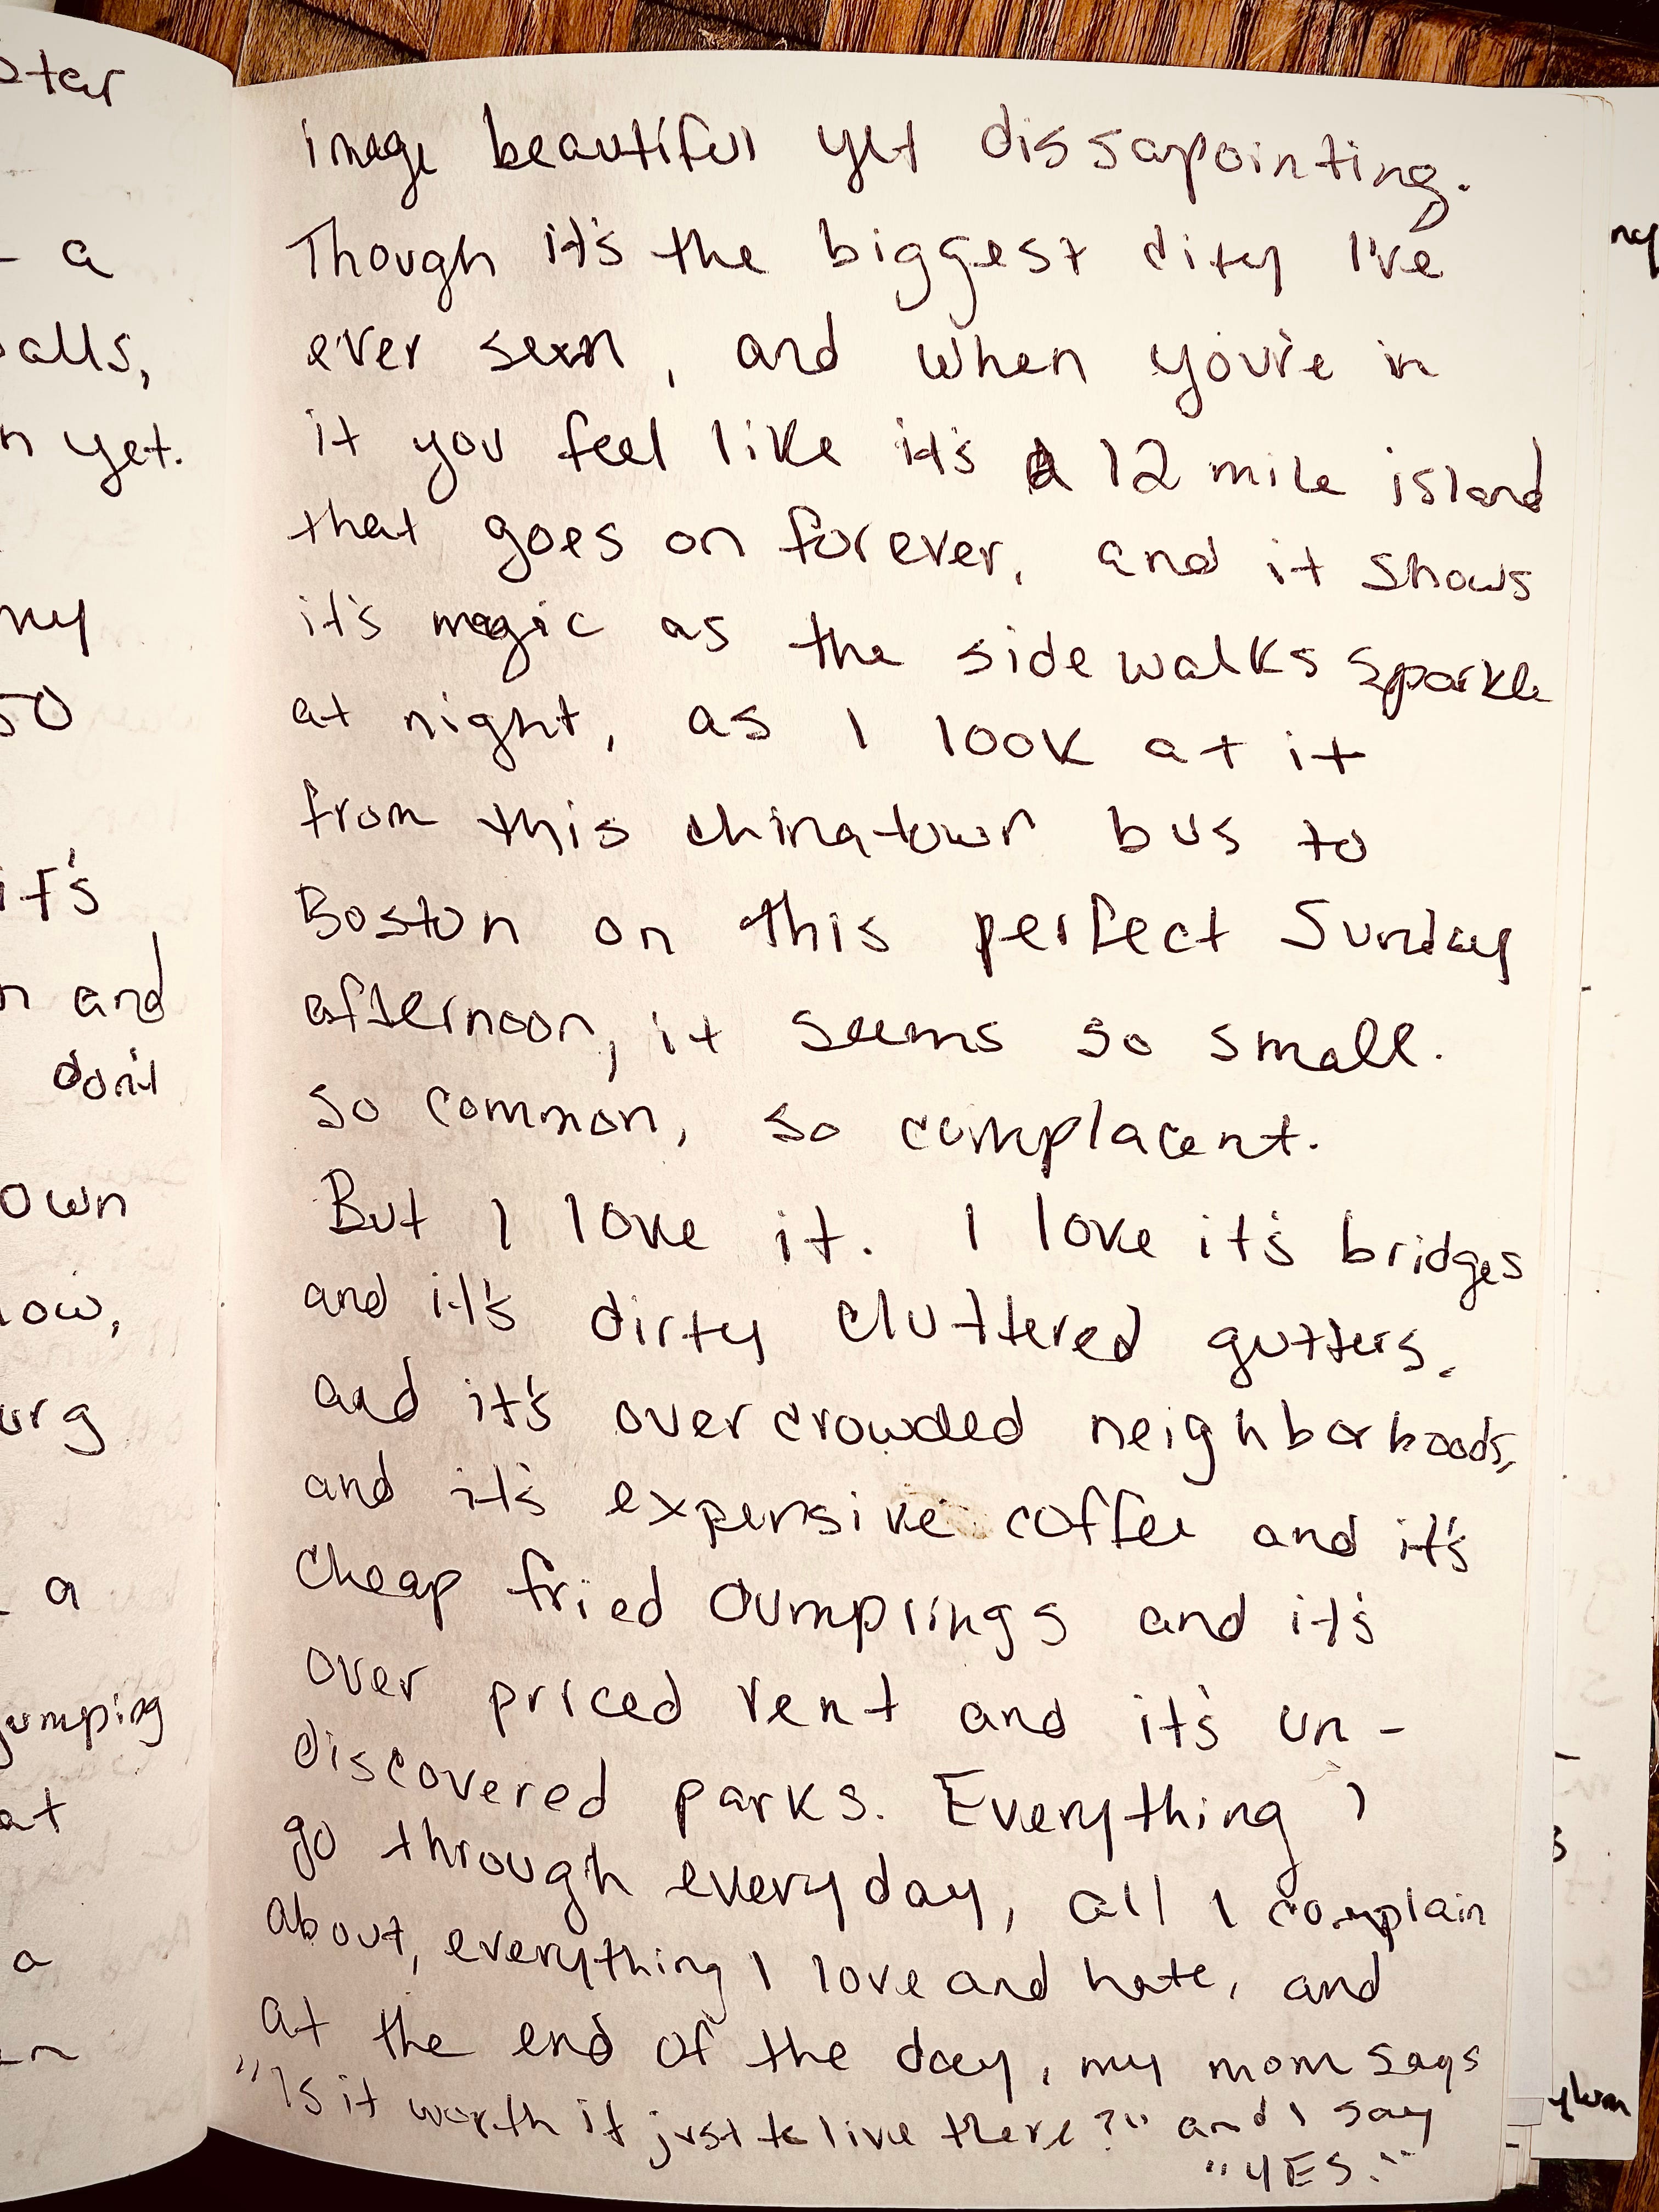 image beautiful yet dissapointing.
Though it's the biggest city I've
ever seen, and when you're in
it you feel like it's a 12 mile island
that goes on forever, and it shows
it's magic as the sidewalks sparkle
at night, as I look at it
from this chinatown bus to
Boston on this perfect Sunday
afternoon, it seems so small.
So common, so complacent.
But I love it. I love it's bridges
and it's dirty cluttered gutters.
and it's overcrowded neighborhoods,
and it's expensive coffee and it's
cheap fried dumplings and it's
over priced rent and it's un-
discovered parks. Everything I
go through everyday, all I complain
about, everything I love and hate, and
at the end of the day, my mom says
"Is it worth it just to live there?" and I say
"YES."
a
alls,
yet.
it's
and
don't
own
ow,
urg
a
jumping
at
a